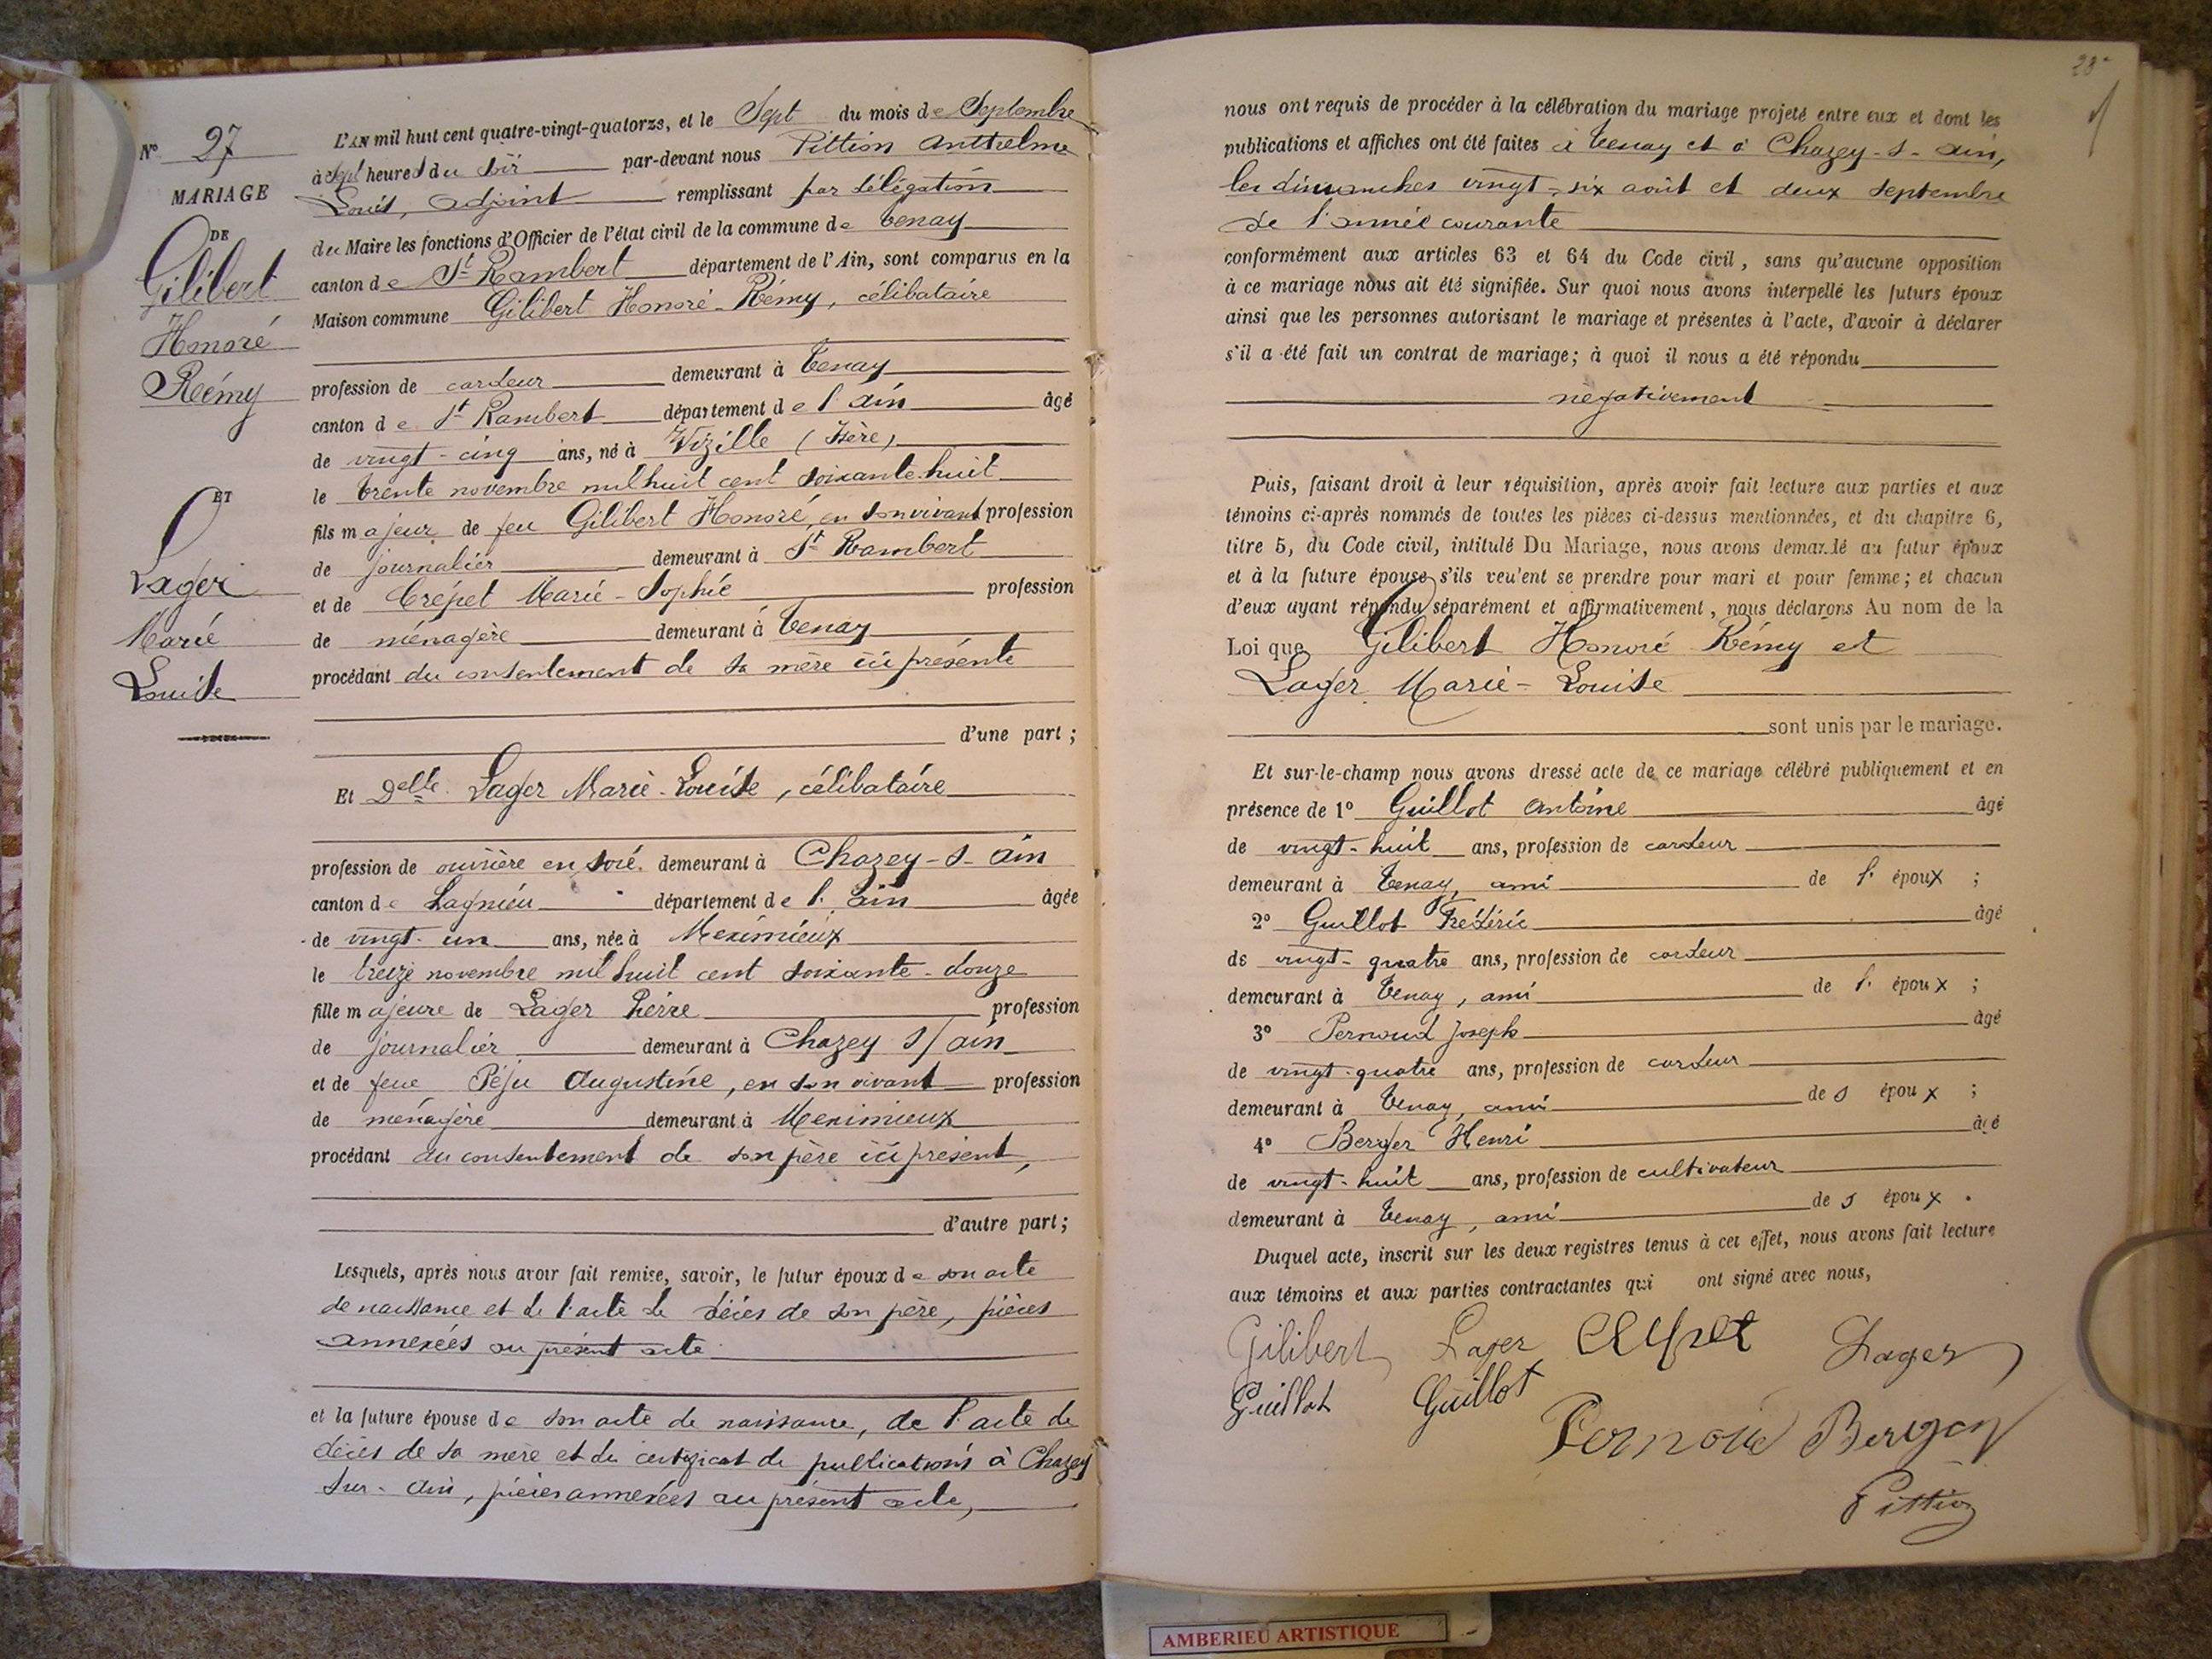 N° 27
MARIAGE
DE
Gilibert
Honoré
Rémy
ET
Lager
Marie
Louise
L'AN mil huit cent quatre-vingt-quatorze, et le Sept du mois de Septembre
à sept heures du soir par-devant nous Pittion Anthelme
Louis, adjoint remplissant par délégation
du Maire les fonctions d'Officier de l'état civil de la commune de Tenay
canton de St Rambert département de l'Ain, sont comparus en la
Maison commune Gilibert Honoré-Rémy, célibataire
profession de cardeur demeurant à Tenay
canton de St Rambert département de l'Ain âgé
de vingt-cinq ans, né à Vizille (Isère)
le trente novembre mil huit cent soixante-huit
fils majeur de feu Gilibert Honoré, en son vivant profession
de journalier demeurant à St Rambert
et de Crépet Marie-Sophie profession
de ménagère demeurant à Tenay
procédant du consentement de sa mère ici présente
d'une part ;
Et Delle Lager Marie-Louise, célibataire
profession de ouvrière en soie demeurant à Chazey-s-Ain
canton de Lagnieu département de l'Ain âgée
de vingt-un ans, née à Meximieux
le treize novembre mil huit cent soixante-douze
fille majeure de Lager Pierre profession
de journalier demeurant à Chazey s/Ain
et de feue Péju Augustine, en son vivant profession
de ménagère demeurant à Meximieux
procédant du consentement de son père ici présent,
d'autre part ;
Lesquels, après nous avoir fait remise, savoir, le futur époux de son acte
de naissance et de l'acte de décès de son père, pièces
annexées au présent acte
et la future épouse de son acte de naissance, de l'acte de
décès de sa mère et du certificat de publications à Chazey
sur-Ain, pièces annexées au présent acte,
28
nous ont requis de procéder à la célébration du mariage projeté entre eux et dont les
publications et affiches ont été faites à Tenay et à Chazey-s-Ain,
les dimanches vingt-six août et deux septembre
de l'année courante
conformément aux articles 63 et 64 du Code civil, sans qu'aucune opposition
à ce mariage nous ait été signifiée. Sur quoi nous avons interpellé les futurs époux
ainsi que les personnes autorisant le mariage et présentes à l'acte, d'avoir à déclarer
s'il a été fait un contrat de mariage ; à quoi il nous a été répondu
négativement
Puis, faisant droit à leur réquisition, après avoir fait lecture aux parties et aux
témoins ci-après nommés de toutes les pièces ci-dessus mentionnées, et du chapitre 6,
titre 5, du Code civil, intitulé Du Mariage, nous avons demandé au futur époux
et à la future épouse s'ils veulent se prendre pour mari et pour femme ; et chacun
d'eux ayant répondu séparément et affirmativement, nous déclarons Au nom de la
Loi que Gilibert Honoré Rémy et
Lager Marie-Louise
sont unis par le mariage.
Et sur-le-champ nous avons dressé acte de ce mariage célébré publiquement et en
présence de 1° Guillot Antoine âgé
de vingt-huit ans, profession de cardeur
demeurant à Tenay, ami de l'époux ;
2° Guillot Frédéric âgé
de vingt-quatre ans, profession de cardeur
demeurant à Tenay, ami de l'époux ;
3° Pernoud Joseph âgé
de vingt-quatre ans, profession de cardeur
demeurant à Tenay, ami des époux ;
4° Berger Henri âgé
de vingt-huit ans, profession de cultivateur
demeurant à Tenay, ami des époux.
Duquel acte, inscrit sur les deux registres tenus à cet effet, nous avons fait lecture
aux témoins et aux parties contractantes qui ont signé avec nous,
Gilibert Lager Lager
Guillot Guillot
Pernoud Berger
Pittion
AMBERIEU ARTISTIQUE